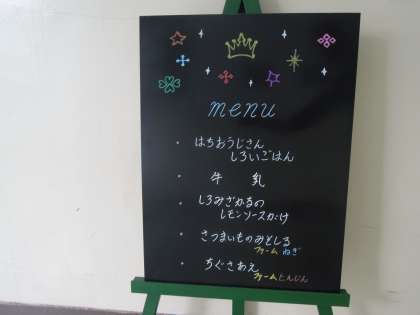 menu
・ はちおうじさん
しろいごはん
・ 牛 乳
・ しろみざかなの
レモンソースかけ
・ さつまいものみそしる
ファーム ねぎ
・ ちぐさあえ
ファームにんじん